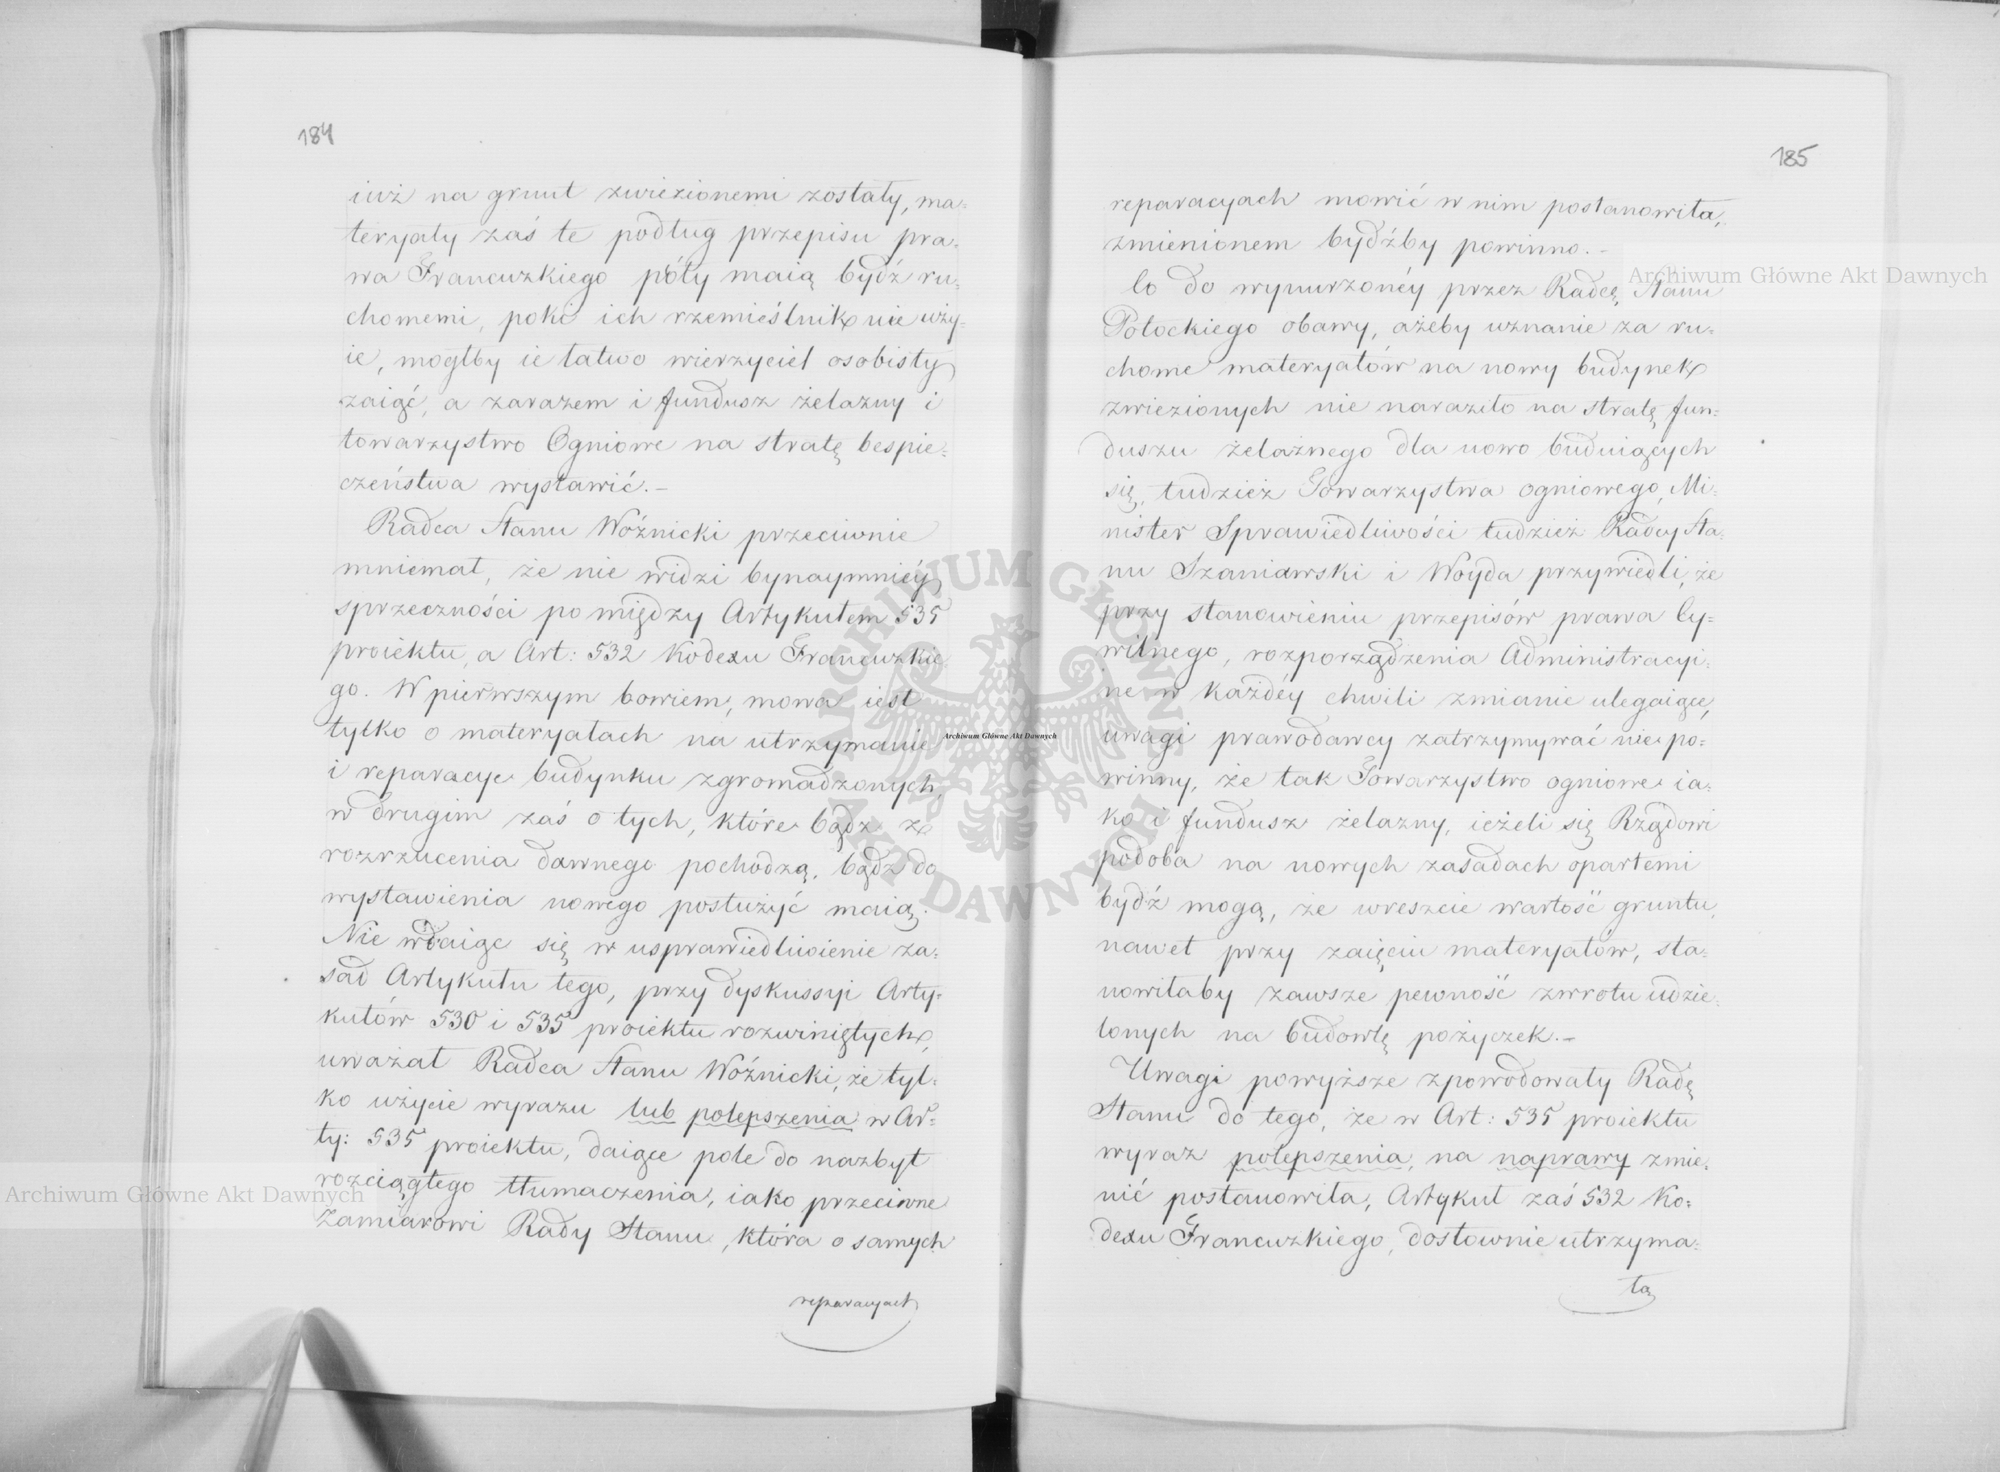 184
iuż na grunt zwiezionemi zostały, ma=
teryały zaś te podług przepisu pra=
wa Francuzkiego póty maią bydź ru=
chomemi, poko ich rzemieślnik nie uży=
ie, mogłby ie łatwo wierzyciel osobisty
zaiąć, a zarazem i fundusz żelazny i
towarzystwo Ogniowe na stratę bespie=
czeństwa wystawić.–
Radca Stanu Woźnicki przeciwnie
mniemał, że nie widzi bynaymniéy
sprzeczności pomiędzy Artykułem 535
proiektu, a Art: 532 Kodexu Francuzkie
go. W pierwszym bowiem, mowa iest
tylko o materyałach na utrzymanie
i reparacye budynku zgromadzonych,
w drugim zaś o tych, które bądź z
rozrzucenia dawnego pochodzą, bądź do
wystawienia nowego posłużyć maią.
Nie wdaiąc się w usprawiedliwienie za=
sad Artykułu tego, przy dyskussyi Arty=
kułów 530 i 535 proiektu rozwiniętych,
uważał Radca Stanu Woźnicki, że tyl=
ko użycie wyrazu lub polepszenia w Ar=
ty: 535 proiektu, daiące pole do nazbyt
rozciągłego tłumaczenia, iako przeciwne
Zamiarowi Rady Stanu, która o samych
reparacyach
185
reparacyach mowić w nim postanowiła,
zmienionem bydźby powinno.–
Co do wynurzonéy przez Radcę Stanu
Potockiego obawy, ażeby uznanie za ru=
chome materyałów na nowy budynek
zwiezionych nie naraziło na stratę fun=
duszu żelaznego dla nowo buduiących
się, tudzież Towarzystwa ogniowego, Mi=
nister Sprawiedliwości tudzież Radcy Sta=
nu Szaniawski i Woyda przywiedli, że
przy stanowieniu przepisów prawa Cy=
wilnego, rozporządzenia Administracyi=
ne w każdéy chwili zmianie ulegaiące,
uwagi prawodawcy zatrzymywać nie po=
winny, że tak Towarzystwo ogniowe ia=
ko i fundusz żelazny, ieżeli się Rządowi
podoba na nowych zasadach opartemi
bydź mogą, że wreszcie wartość gruntu,
nawet przy zaięciu materyałów, sta=
nowiłaby zawsze pewność zwrotu udzie=
lonych na budowlę pożyczek.–
Uwagi powyższe zpowodowały Radę
Stanu do tego, że w Art: 535 proiektu
wyraz polepszenia, na naprawy zmie=
nić postanowiła, Artykuł zaś 532 Ko=
dexu Francuzkiego, dosłownie utrzyma=
ła
Archiwum Główne Akt Dawnych
Archiwum Główne Akt Dawnych
Archiwum Główne Akt Dawnych
ARCHIWUM GŁÓWNE AKT DAWNYCH